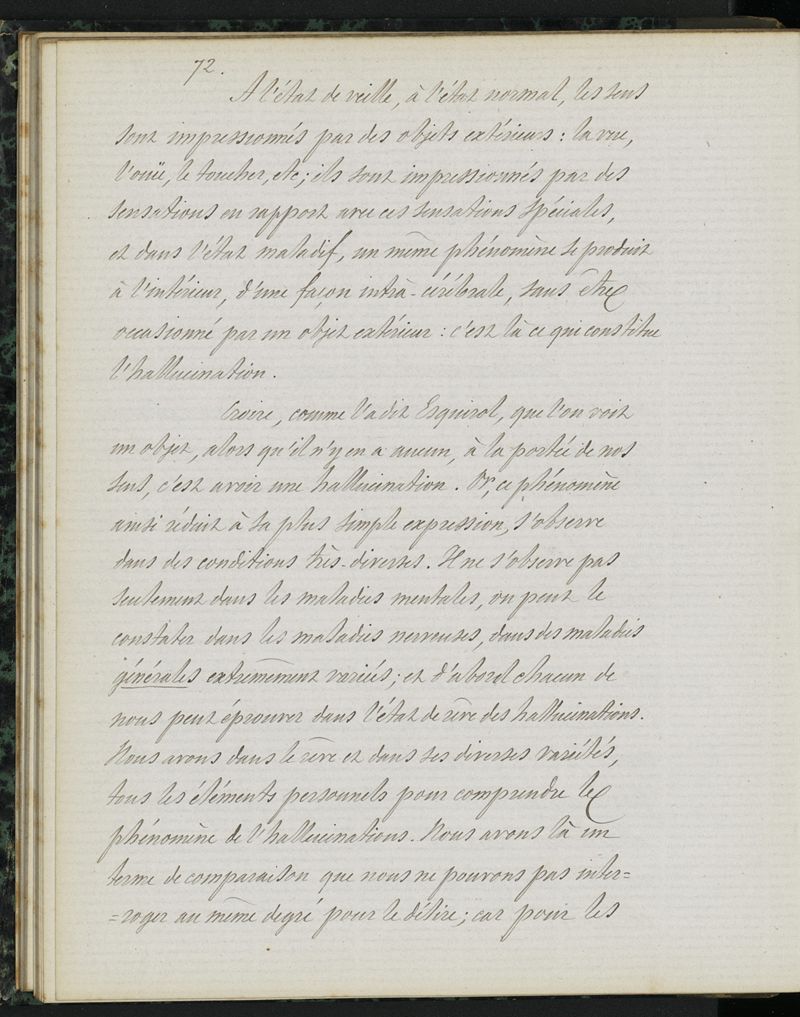 72.
A l'état de veille, à l'état normal, les sens
sont impressionnés par des objets extérieurs : la vue,
l'ouïe, le toucher, etc; ils sont impressionnés par des
sensations en rapport avec ces sensations spéciales,
et dans l'état maladif, un même phénomène se produit
à l'intérieur, d'une façon intrà-cérébrale, sans être
occasionné par un objet extérieur : c'est là ce qui constitue
l'hallucination.
Croire, comme l'a dit Esquirol, que l'on voit
un objet, alors qu'il n'y en a aucun, à la portée de nos
sens, c'est avoir une hallucination. Or, ce phénomène
ainsi réduit à sa plus simple expression, s'observe
dans des conditions très-diverses. Il ne s'observe pas
seulement dans les maladies mentales, on peut le
constater dans les maladies nerveuses, dans des maladies
générales extrêmement variées; et d'abord chacun de
nous peut éprouver dans l'état de rêve des hallucinations.
Nous avons dans le rêve et dans ses diverses variétés,
tous les éléments personnels pour comprendre le
phénomène de l'hallucinations. Nous avons là un
terme de comparaison que nous ne pouvons pas inter=
=roger au même degré pour le délire; car pour les